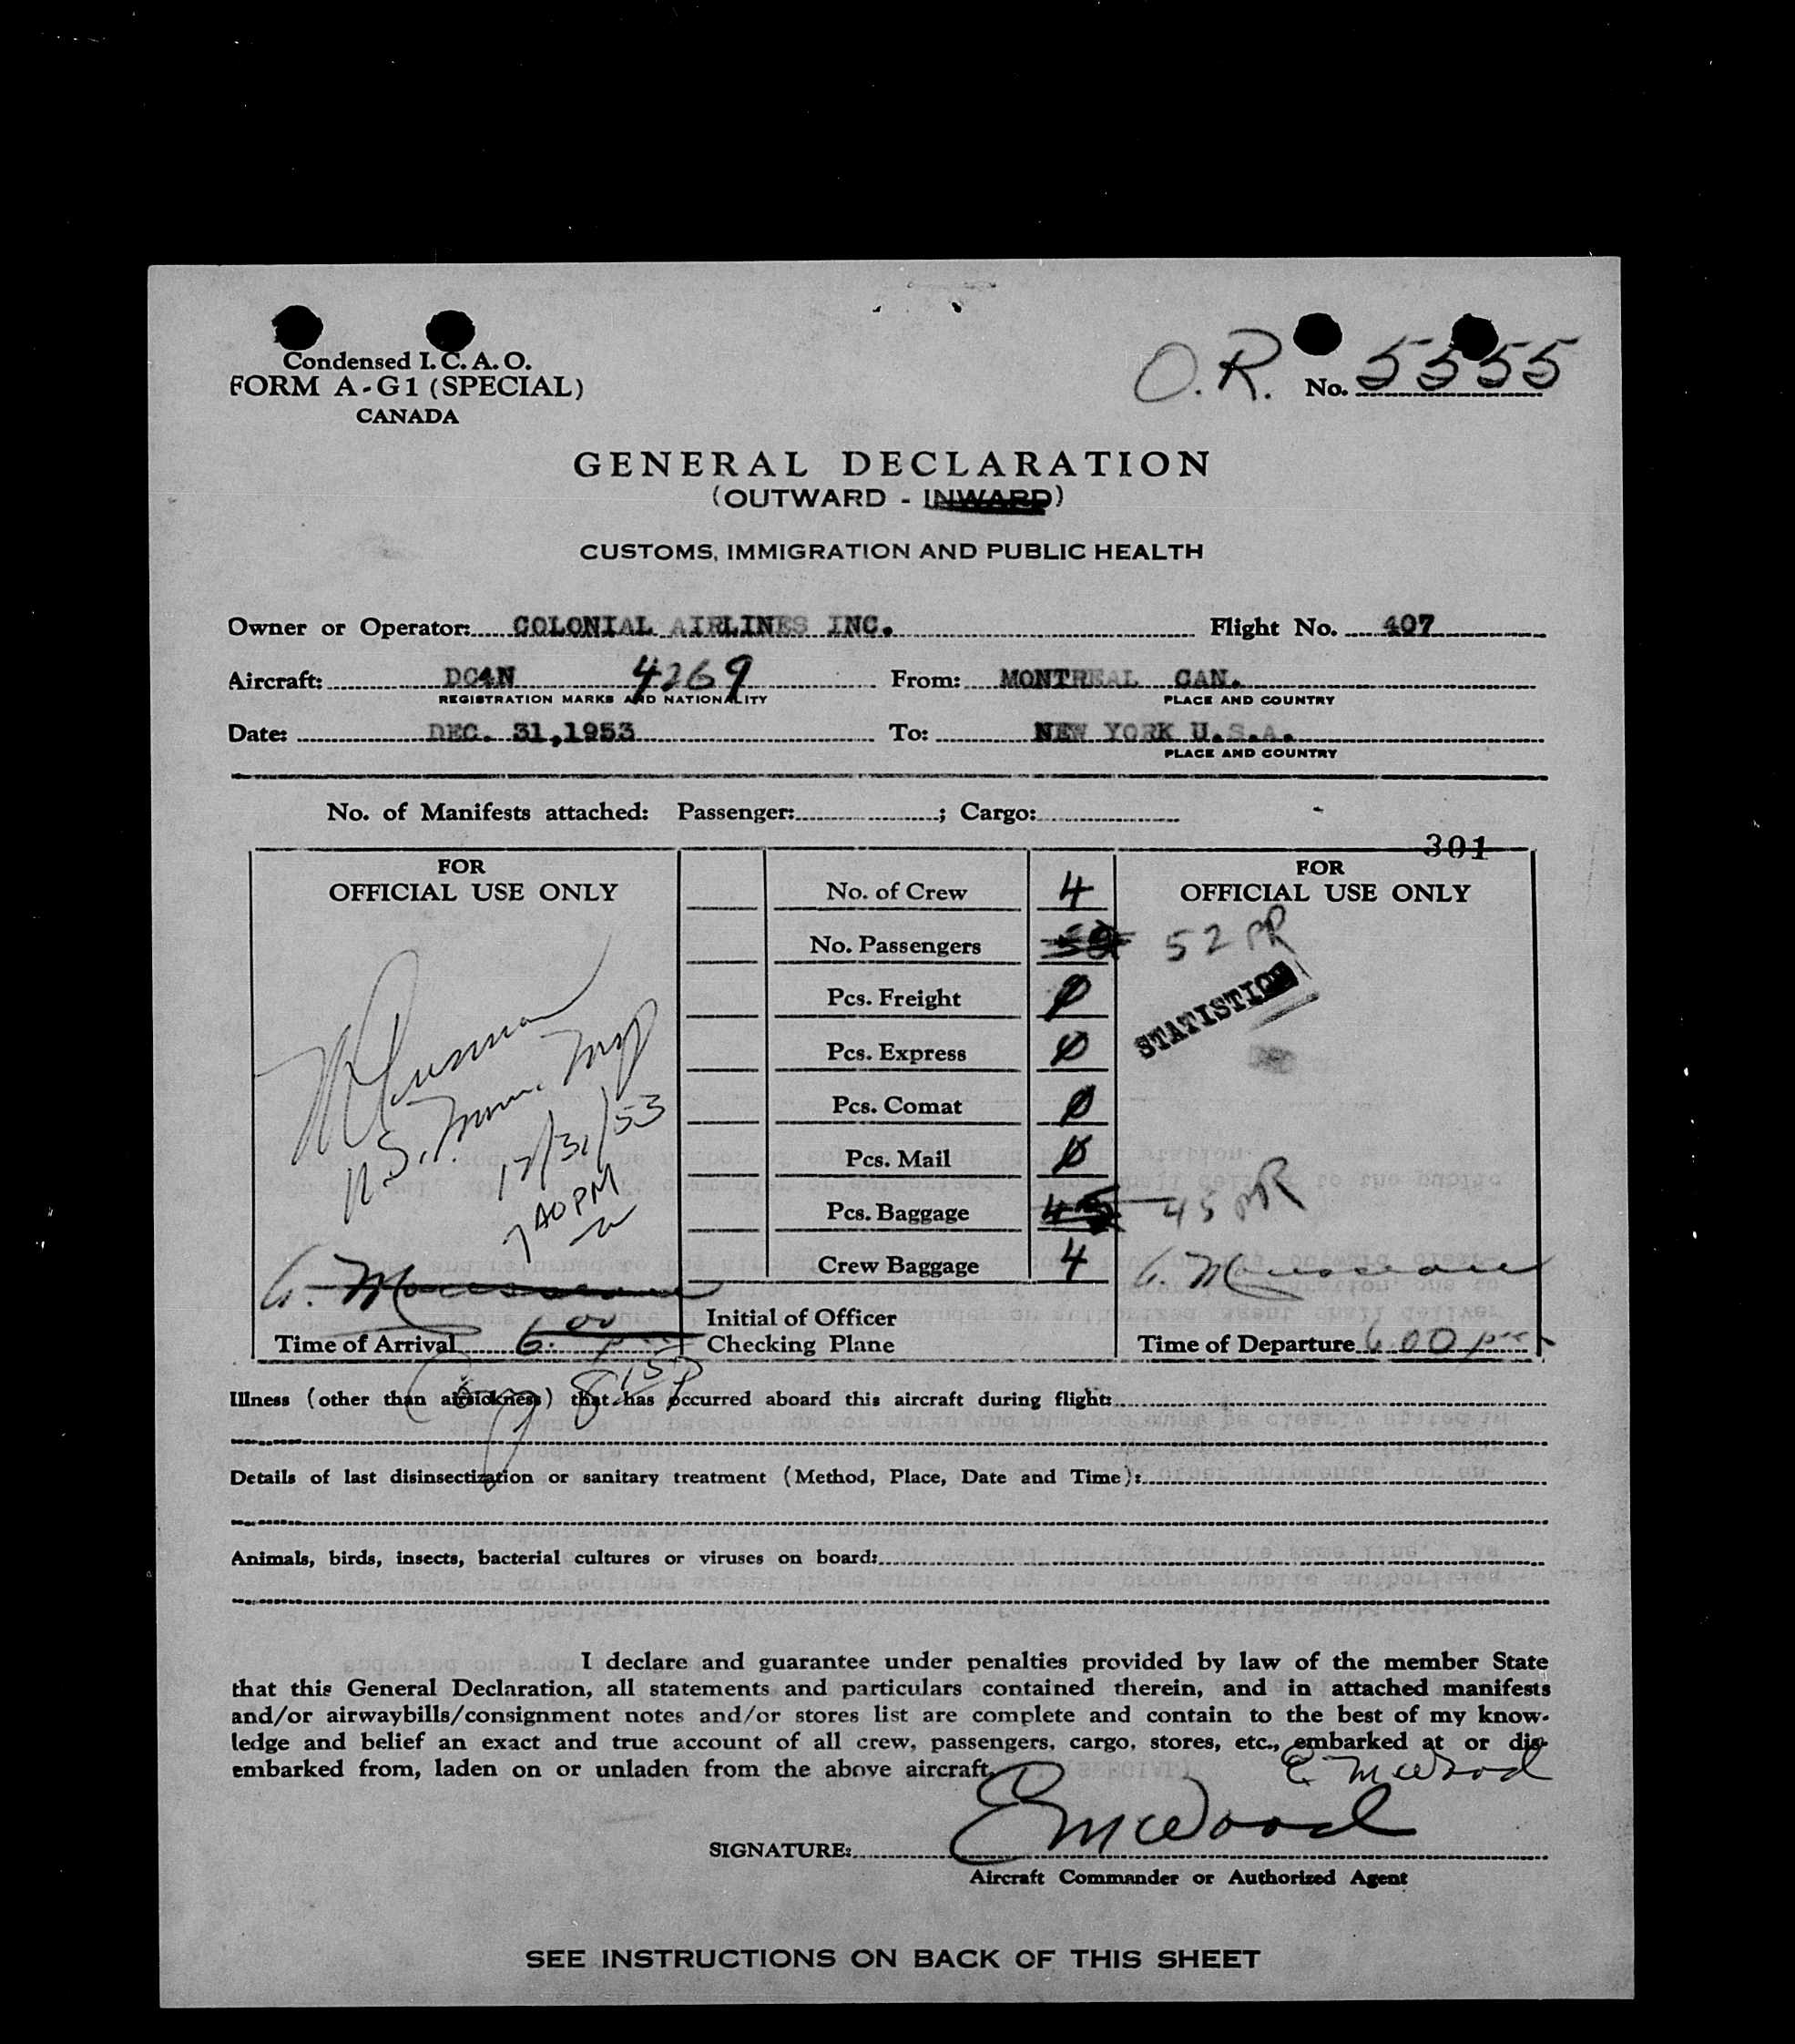 Condensed I. C. A. O.
FORM A-G1 (SPECIAL)
CANADA
O.R. No. 5555
GENERAL DECLARATION
(OUTWARD - INWARD)
CUSTOMS, IMMIGRATION AND PUBLIC HEALTH
Owner or Operator: COLONIAL AIRLINES INC. Flight No. 407
Aircraft: DC4N 4269 From: MONTREAL CAN.
REGISTRATION MARKS AND NATIONALITY PLACE AND COUNTRY
Date: DEC. 31,1953 To: NEW YORK U.S.A.
PLACE AND COUNTRY
No. of Manifests attached: Passenger: ; Cargo:
301
FOR OFFICIAL USE ONLY
No. of Crew 4
FOR OFFICIAL USE ONLY
No. Passengers 52 PR
Pcs. Freight 0
STATISTICS
Pcs. Express 0
Pcs. Comat 0
Pcs. Mail 0
Pcs. Baggage 45 45 PR
Crew Baggage 4
12/31/53
740 PM
Initial of Officer
Checking Plane
Time of Arrival 6.00
Time of Departure 6.00 pm
8 15 P
Illness (other than airsickness) that has occurred aboard this aircraft during flight:
Details of last disinsectization or sanitary treatment (Method, Place, Date and Time):
Animals, birds, insects, bacterial cultures or viruses on board:
I declare and guarantee under penalties provided by law of the member State
that this General Declaration, all statements and particulars contained therein, and in attached manifests
and/or airwaybills/consignment notes and/or stores list are complete and contain to the best of my know-
ledge and belief an exact and true account of all crew, passengers, cargo, stores, etc., embarked at or dis-
embarked from, laden on or unladen from the above aircraft.
E McWood
SIGNATURE: E McWood
Aircraft Commander or Authorized Agent
SEE INSTRUCTIONS ON BACK OF THIS SHEET